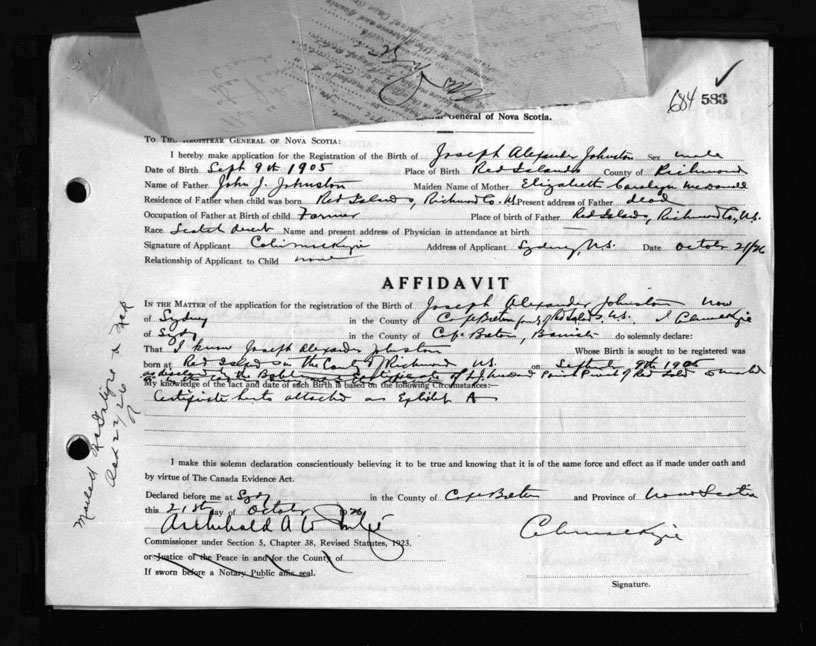 684 583
General of Nova Scotia.
To The Registrar General of Nova Scotia:
I hereby make application for the Registration of the Birth of Joseph Alexander Johnston Sex male
Date of Birth Sept 9th 1905 Place of Birth Red Islands County of Richmond
Name of Father John J. Johnston Maiden Name of Mother Elizabeth Carolyn McDonald
Residence of Father when child was born Red Islands, Richmond Co. N.S. Present address of Father dead
Occupation of Father at Birth of child Farmer Place of birth of Father Red Islands, Richmond Co., N.S.
Race Scotch descent Name and present address of Physician in attendance at birth —
Signature of Applicant Colin McKenzie Address of Applicant Sydney, N.S. Date October 21/26
Relationship of Applicant to Child none
AFFIDAVIT
In the Matter of the application for the registration of the Birth of Joseph Alexander Johnston now
of Sydney in the County of Cape Breton of Red Islands, N.S. I
of Sydney in the County of Cape Breton, Barrister do solemnly declare:
That I know Joseph Alexander Johnston Whose Birth is sought to be registered was
born at Red Islands in the County of Richmond N.S. on September 9th 1905
as disclosed in the Baptismal Certificate of Parish Priest of Red Islands
My knowledge of the fact and date of such Birth is based on the following Circumstances:—
Certificate hereto attached as Exhibit A
I make this solemn declaration conscientiously believing it to be true and knowing that it is of the same force and effect as if made under oath and
by virtue of The Canada Evidence Act.
Declared before me at Sydney in the County of Cape Breton and Province of Nova Scotia
this 21st day of October 1926
Archibald A.
Commissioner under Section 5, Chapter 38, Revised Statutes, 1923.
or Justice of the Peace in and for the County of
If sworn before a Notary Public affix seal.
Signature.
Mailed
Oct 27/26